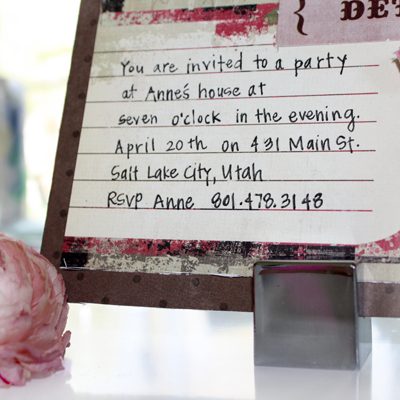 DET
You are invited to a party
at Anne's house at
seven o'clock in the evening.
April 20th on 431 Main St.
Salt Lake City, Utah
RSVP Anne 801.478.3148